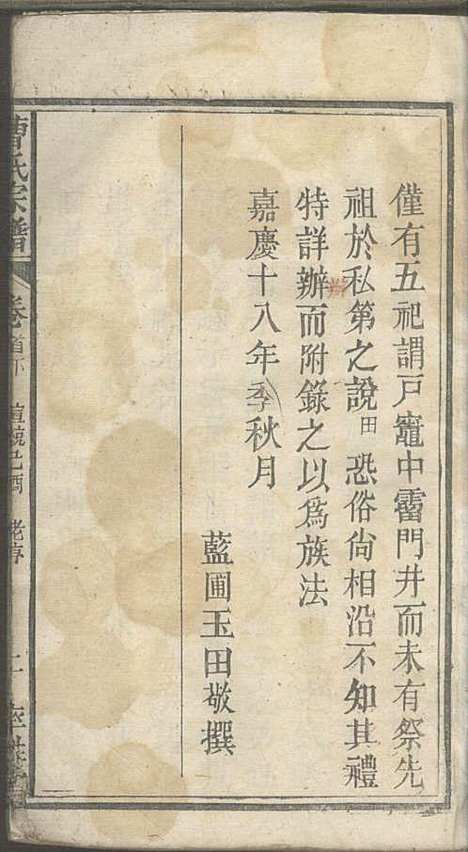 僅有五祀謂戸竈中霤門井而未有祭先
祖於私第之說田恐俗尙相沿不知其禮
特詳辦而附錄之以爲族法
嘉慶十八年季秋月
藍圃玉田敬撰
曹氏宗譜
卷首下